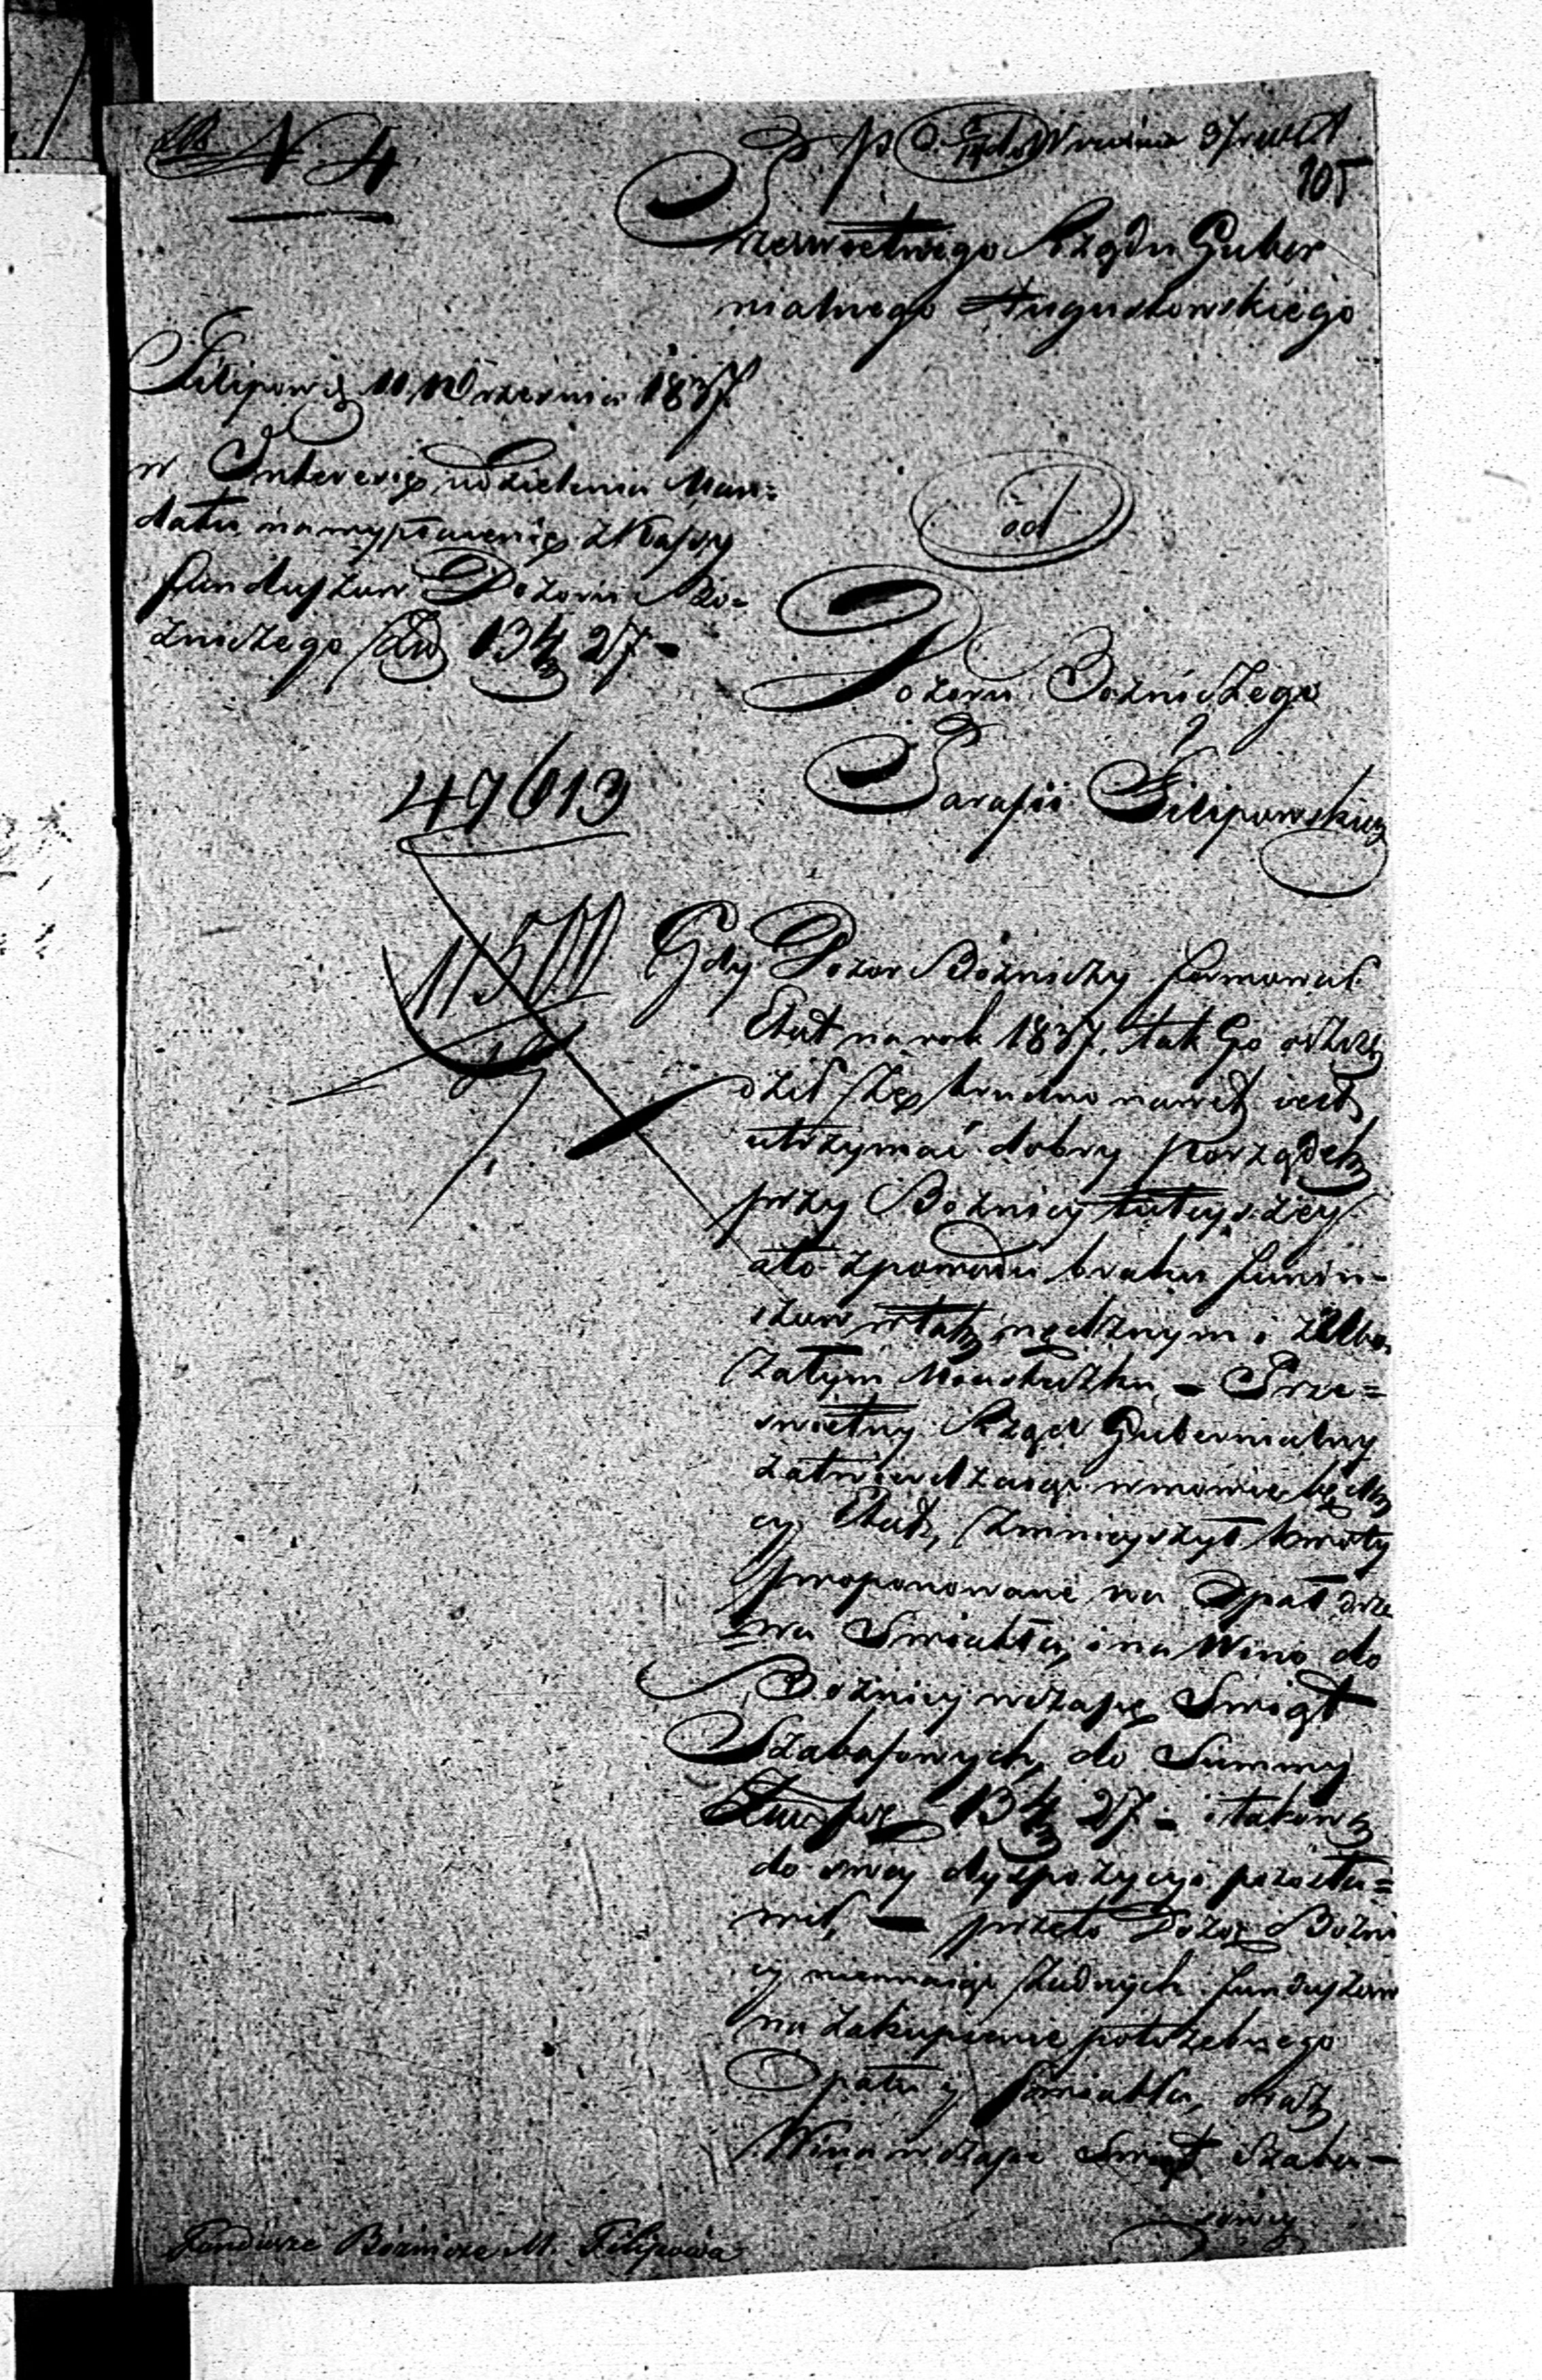 N. 4
105
Przeswietnego Rządu Guber
nialnego Augustowskiego
Filipow d. 11 Września 1837.
w Interesie udzielenia Man=
datu na wypłacenie z Kassy
funduszow Dozoru Bo=
zniczego 134 27 -
od
Dozoru Bozniczego
Parafii Filipowskiey
47613
11500
Gdy Dozor Bozniczy formował
Etat na rok 1837. tak Go
trudno nawet iest
utrzymać dobry porządek
przy Boznicy tuteyszey
a to z powodu braku fundu=
szow w tak nędznym i zubo
załym Miasteczku, - Prze=
swietny Rząd Gubernialny
zatwierdzaiąc w mowie będą
cy Etat, zmnieyszył kwoty
proponowane na Opał drze
wa Swiatła, i na Wino do
Boznicy w czasie Swiąt
Szabasowych, do Summy
134 27 - i takową
do swey dyspozycyi pozosta=
wił, - przeto Dozor Bozni
cy niemaiąc żadnych funduszow
na zakupienie potrzebnego
Opału y Swiatła, oraz
Wina w czasie Swiąt Szaba=
sowych
Fundusze Bóżnicze M. Filipowa